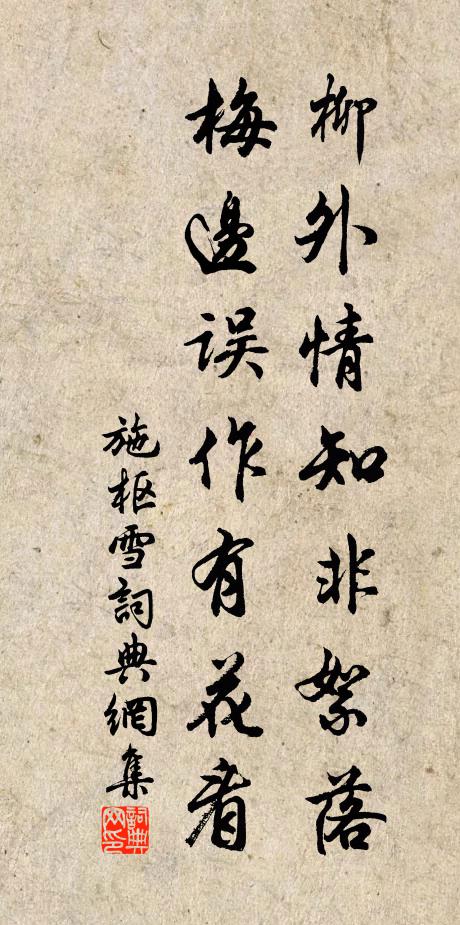 柳外情知非絮落
梅邊误作有花看
施枢雪詞典網集
詞典网印